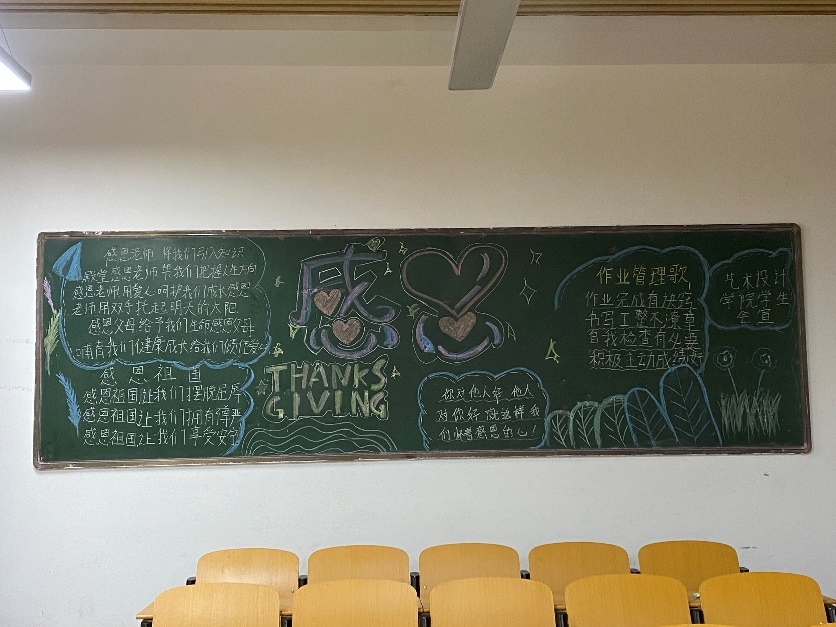 感恩老师 带我们引入知识
殿堂感恩老师帮我们把握人生方向
感恩老师用爱心呵护我们成长感恩
老师用双手托起明天的太阳
感恩父母给予我们生命感恩父母
哺育我们健康成长给我们
感恩祖国
感恩祖国让我们摆脱
感恩祖国让我们拥有尊严
感恩祖国让我们享受
感
THANKS
GIVING
你对他人好 他人
对你好 就这样我
们 感恩的心！
作业管理歌
作业完成有法宝
书写工整不潦草
自我检查有必要
积极主动成绩好
艺术设计
学院学生
会宣